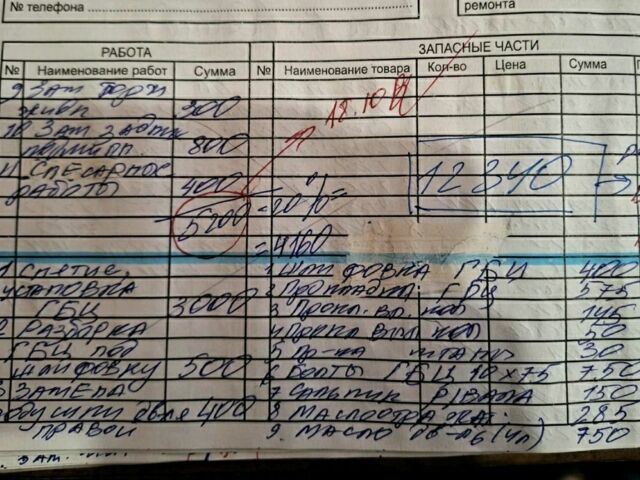 № телефона
ремонта
РАБОТА
ЗАПАСНЫЕ ЧАСТИ
№ Наименование работ Сумма № Наименование товара Кол-во Цена Сумма
9 Зам торм
жидк 300
18.10
10 Зам задних
800
11 Слесарные
работы 400
12340
5200 - 20% =
= 4160
1 Снятие, 1 Шлифовка ГБЦ 400
установка 2 Прокладка ГБЦ 575
ГБЦ 3000 3 Прокл. вп. кол 145
2 Разборка 4 Прокл вып кол 50
ГБЦ под 5 Пр-ка 30
шлифовку 500 6 Болты ГБЦ 10x75 750
3 Замена 7 Сальник р/вала 150
подушки двля 400 8 Маслоотраж. 285
правой 9. Масло (4л) 750